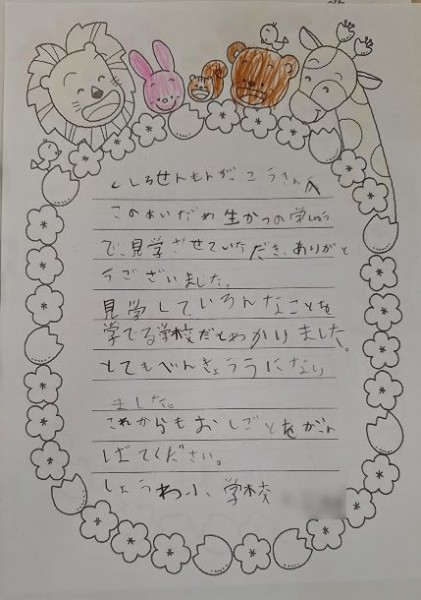 くしろせんもんがっこうさんへ
このあいだめ生かつの学しゅう
で、見学させていただき、ありがと
うございました。
見学していろんなことを
学でる学校だとわかりました。
とてもべんきょううになり
ました。
これからもおしごとをがん
ばてください。
しょうわ小、学校